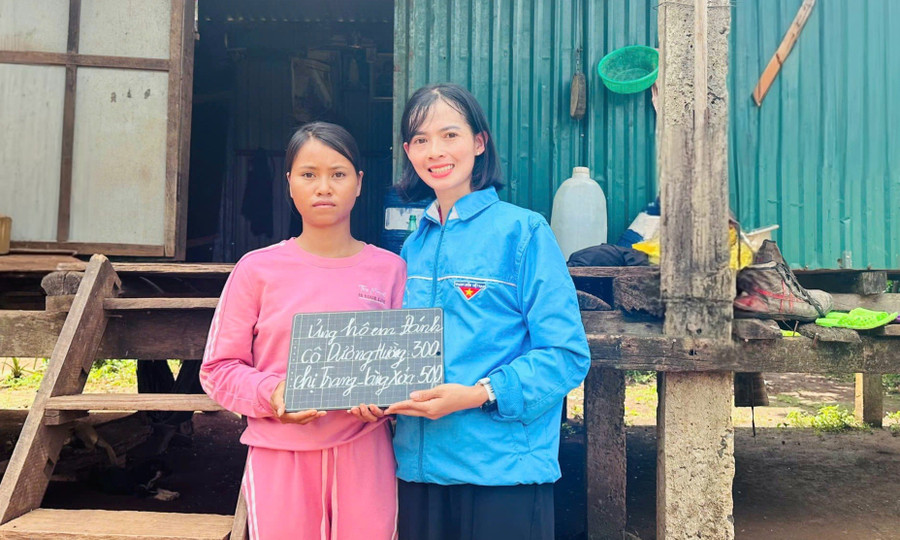 Ủng hộ em Đánh
Cô Dương Hường 300
Chị Trang 500